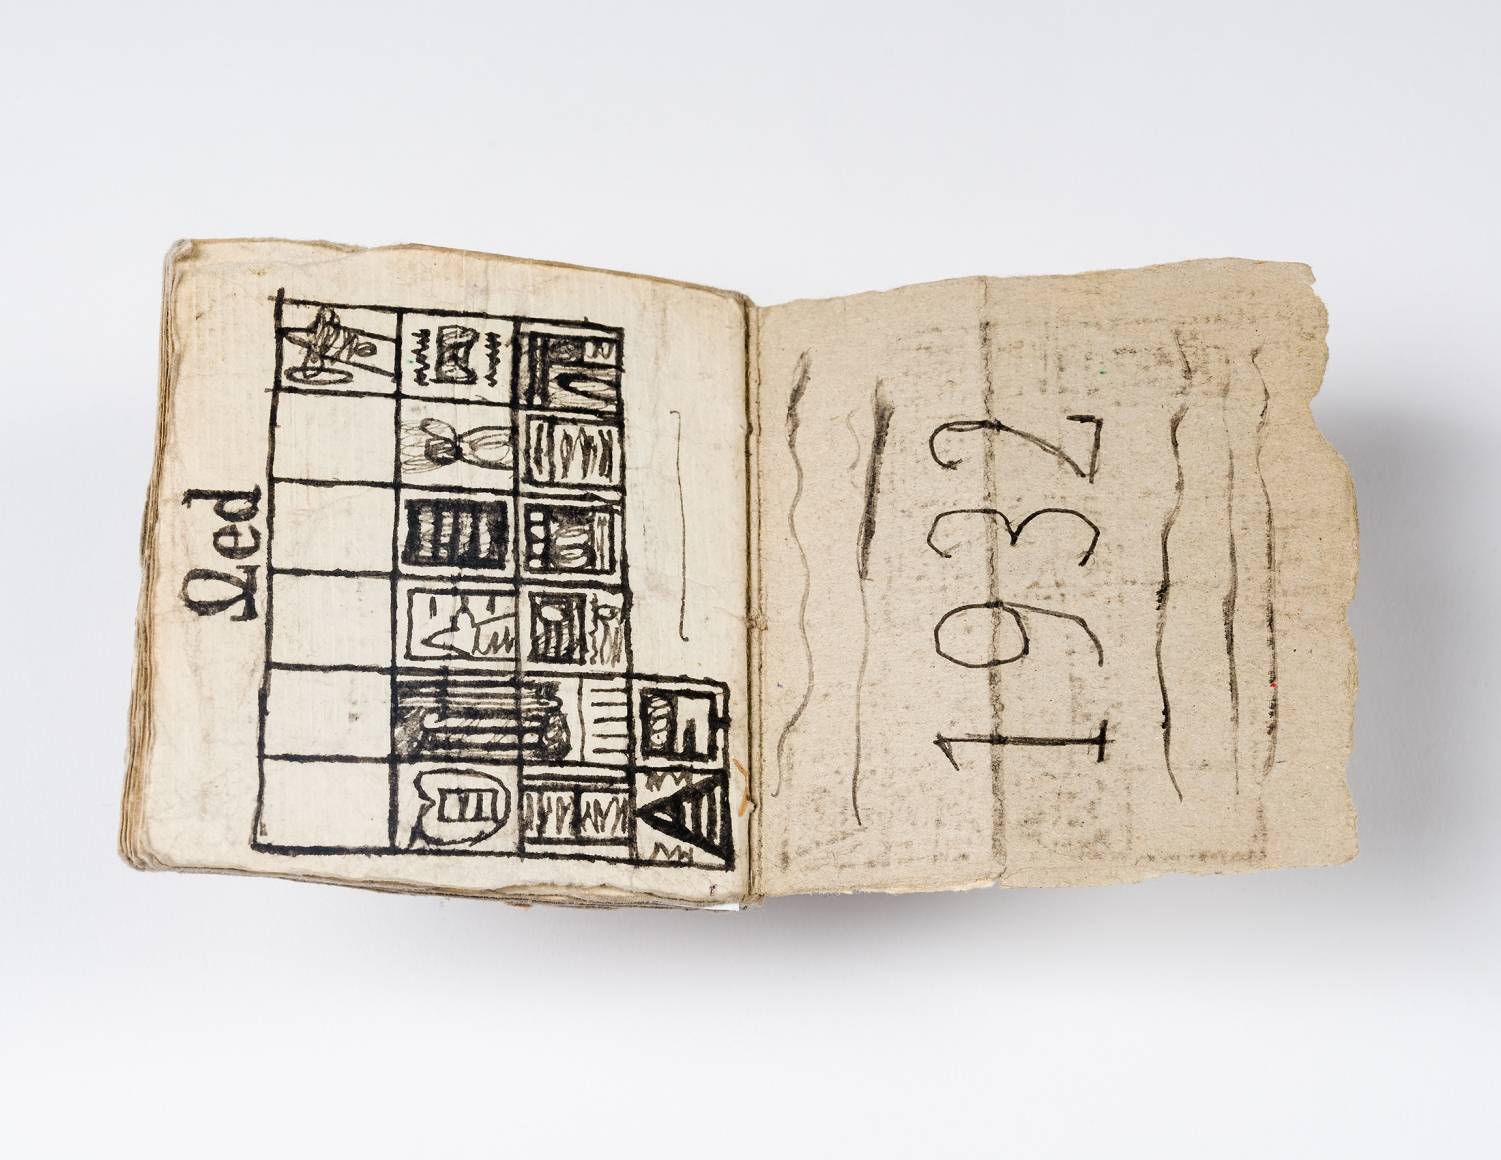 Ωed
1932